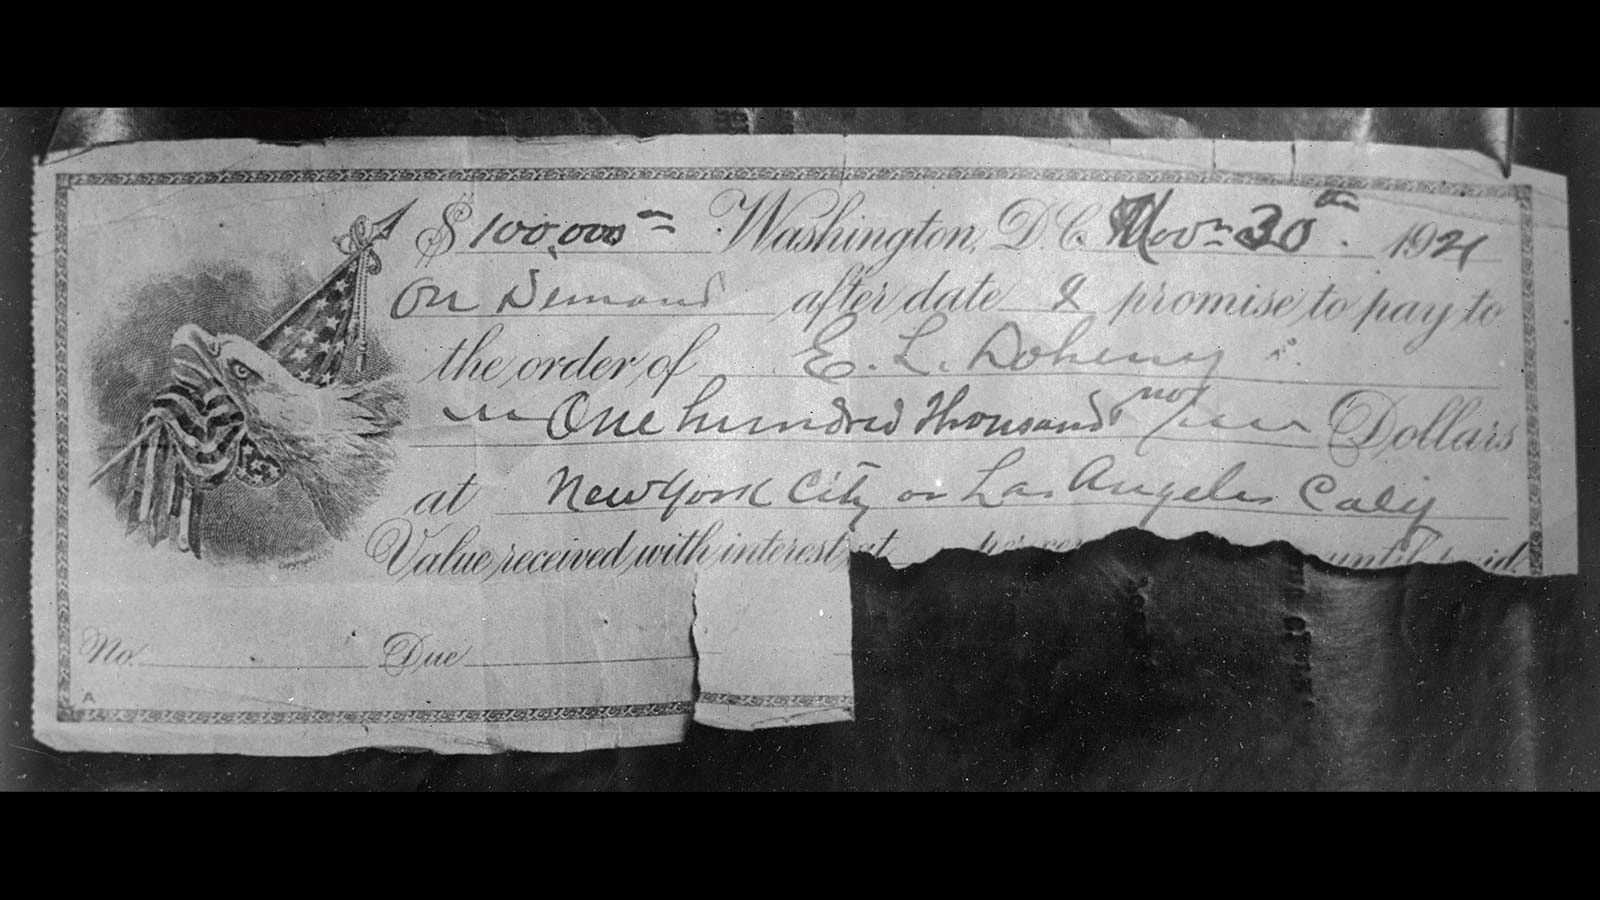 $ 100,000 = Washington, D C. Nov 30th. 1921
On Demand after date I promise to pay to
the order of E. L. Doheny
One hundred thousand no/ Dollars
at New York City or Los Angeles Calif
Value received with interest at per cen until paid.
No. Due
A